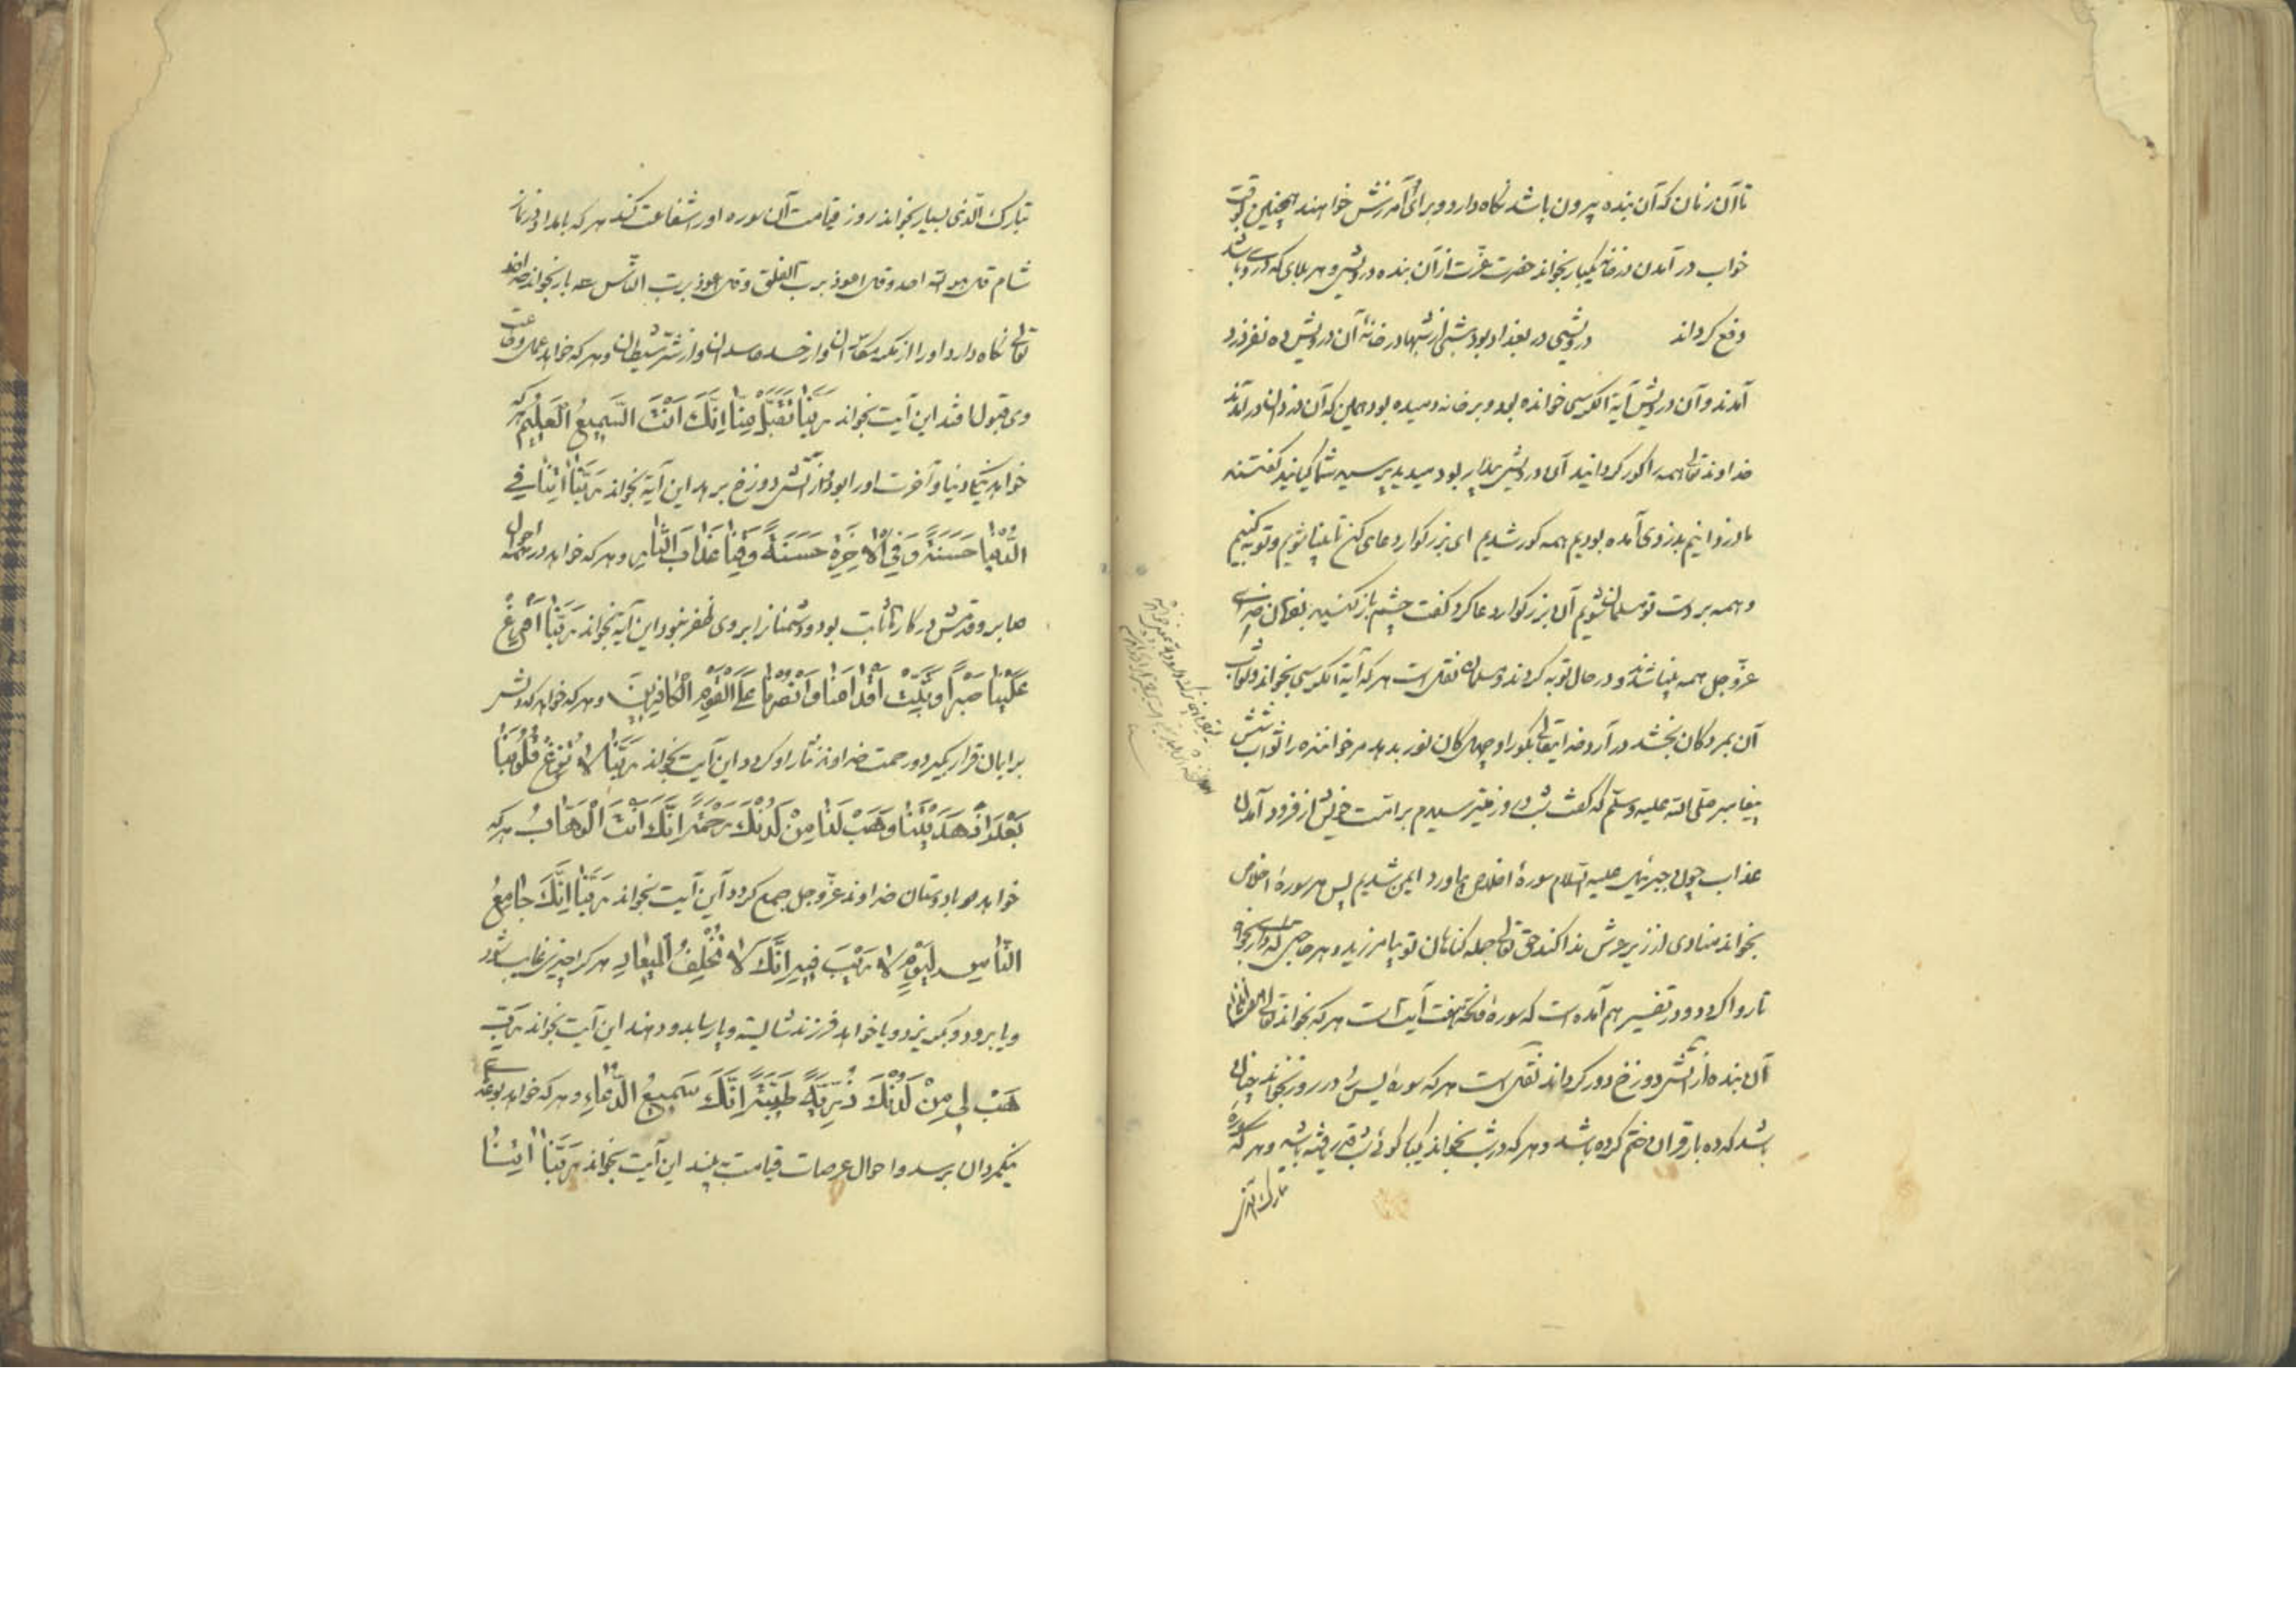 تا آن زمان که آن بنده بیرون باشد نکاه دارد و برای آمرزش خواهند همچنین بوقت
خواب در آمدن در خانه یکبار بخواند حضرت عزت از آن بنده درویشی و هر بلای که در وی باشد
دفع کرداند درویشی در بغداد بود شبی از شبها در خانۀ آن درویش ده نفر دزد
آمدند و آن درویش آیة الکرسی خوانده بود و بر خانه دمیده بود همین که آن دزدان در آمدند
خداوند تعالی همه را کور کردانید آن درویش بیدار بود میدید پرسید شما کیانید کفتند
ما دزدانیم بدزدی آمده بودیم همه کور شدیم ای بزرکوار دعای کن تا بینا شویم و توبه کنیم
و همه بر دست تو مسلمان شویم آن بزرکوار دعا کرد کفت چشم باز کنید بفرمان خدای
عزّ و جل همه بینا شدند و در حال توبه کردند و مسلمان نقلست هر که آیة الکرسی بخواند و ثواب
آن بمردکان بخشد در آرد خدایتعالی بکور او چهل کان نور بدهد مر خواننده را ثواب شش
پیغامبر صلی الله علیه وسلم که کفت شب و روز میترسیدم بر امت خویش از فرود آمدن
عذاب چون جبرئیل علیه السلام سورۀ اخلاص بیاورد ایمن شدیم پس هر سورۀ اخلاص
بخواند منادی از زیر عرش ندا کند حق تعالی جمله کناهان تو بیامرزید و هر حاجتی که داری بخواه
تا روا کردد و در تفسیر هم آمده است که سورۀ فاتحه هفت آیت است هر که بخواند تعالی
آن بنده از آتش دوزخ دور کرداند نقل است هر که سورۀ یس در روز بخواند چنان
باشد که ده بار قرآن ختم کرده باشد و هر که در شب بخواند کوئی شب قدر یافته باشد و هر که سورۀ
تبارک الذی
تبارک الّذی بسیار بخواند روز قیامت آن سوره او را شفاعت کند هر که بامداد و نماز
شام قل هو الله احد و قل اعوذ برب الفلق و قل اعوذ برب النّاس سه بار بخواند خداوند
تعالی نکاه دارد او را از مکر مکاران و از حسد حاسدان و از شرّ شیطان و هر که خواهد عمل و طاعت
وی قبول افتد این آیت بخواند رَبَّنَا تَقَبَّلْ مِنَّا اِنَّكَ اَنْتَ السَّمِيعُ الْعَلِيمُ هر که
خواهد نیکی دنیا و آخرت او را بود و از آتش دوزخ برهد این آیة بخواند رَبَّنَا اٰتِنَا فِي
الدُّنْيَا حَسَنَةً وَفِي الْاٰخِرَةِ حَسَنَةً وَقِنَا عَذَابَ النَّارِ و هر که خواهد در همه احوال
صابر و قدمش در کار ثابت بود و دشمنانرا بر وی ظفر نبود این آیه بخواند رَبَّنَا اَفْرِغْ
عَلَيْنَا صَبْرًا وَثَبِّتْ اَقْدَامَنَا وَانْصُرْنَا عَلَى الْقَوْمِ الْكَافِرِينَ و هر که خواهد که دلش
بر ایمان قرار کیرد و رحمت خداوند نثار او کردد این آیت بخواند رَبَّنَا لَا تُزِغْ قُلُوبَنَا
بَعْدَ اِذْ هَدَيْتَنَا وَهَبْ لَنَا مِنْ لَدُنْكَ رَحْمَةً اِنَّكَ اَنْتَ الْوَهَّابُ هر که
خواهد که با دوستان خداوند عزّ و جل جمع کردد این آیت بخواند رَبَّنَا اِنَّكَ جَامِعُ
النَّاسِ لِيَوْمٍ لَا رَيْبَ فِيهِ اِنَّكَ لَا تُخْلِفُ الْمِيعَادِ هر کرا چیزی غایب شود
و یا برود و بکریزد و یا خواهد فرزند شایسته و پارسا بدو دهند این آیت بخواند رَبِّ
هَبْ لِي مِنْ لَدُنْكَ ذُرِّيَّةً طَيِّبَةً اِنَّكَ سَمِيعُ الدُّعَاءِ و هر که خواهد
نیکمردان برسد و احوال عرصات قیامت به بیند این آیت بخواند رَبَّنَا اٰتِنَا